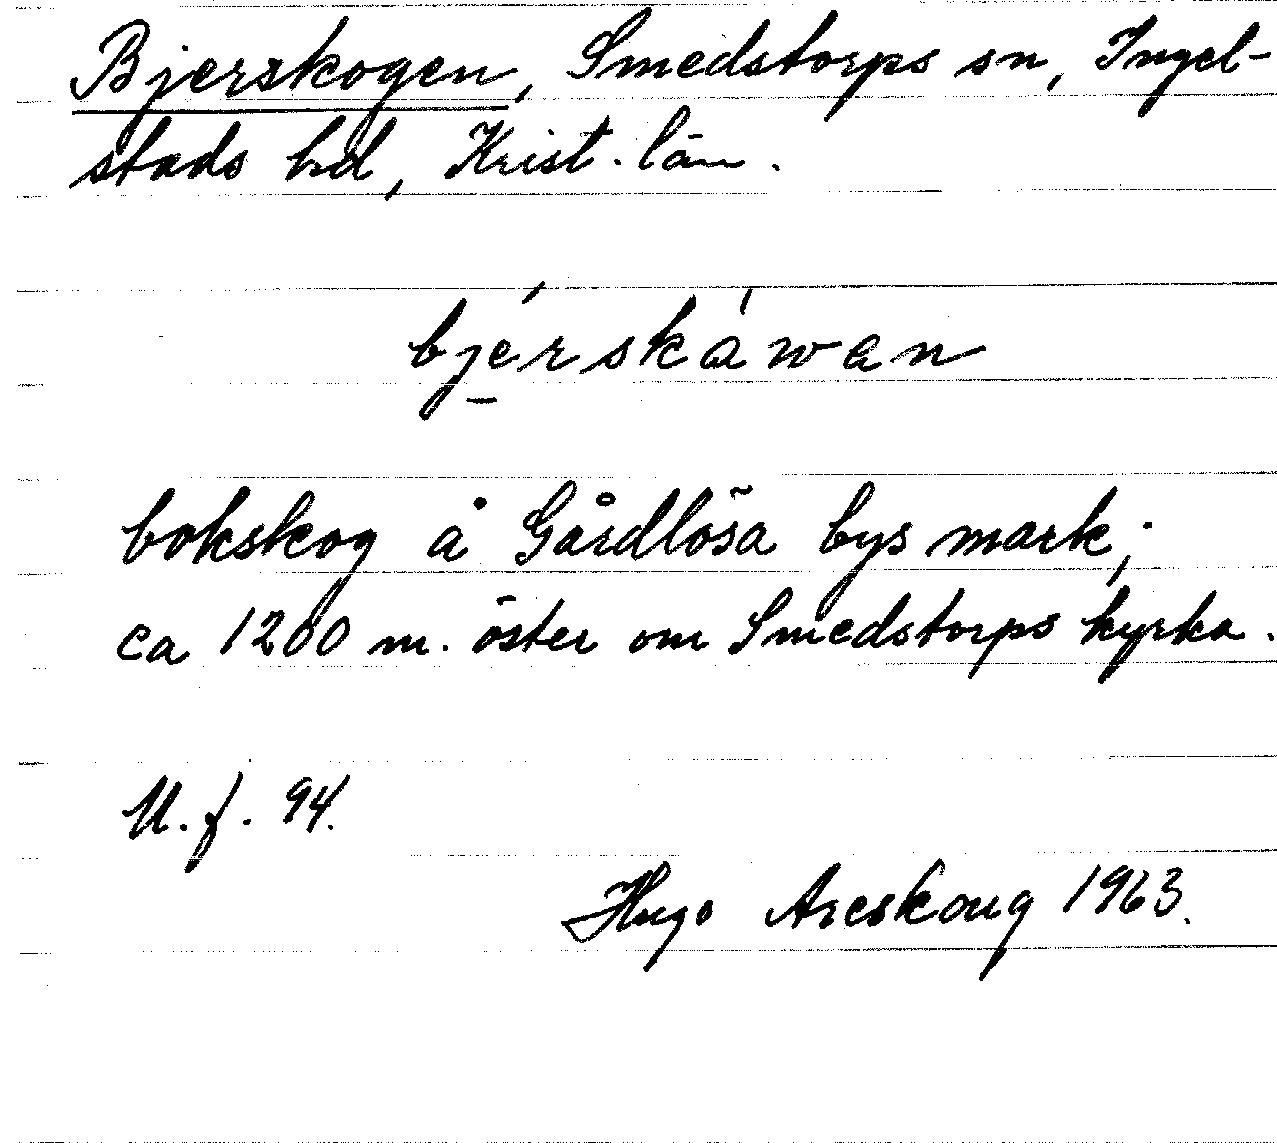 Bjerskogen, Smedstorps sn, Ingel-
stads hd, Krist. län.
bjérskáwan
bokskog å Gårdlösa bys mark;
ca 1200 m. öster om Smedstorps kyrka.
U.f. 94.
Hugo Areskoug 1963.